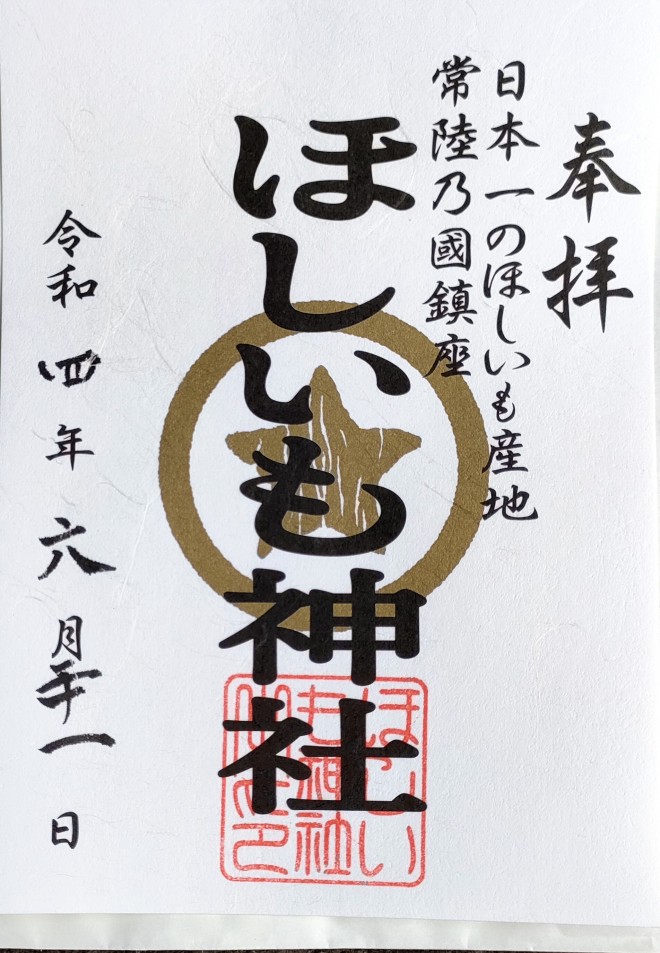 奉拝
日本一のほしいも産地
常陸乃國鎮座
ほしいも神社
ほしい
も神社
令和四年六月二十一日